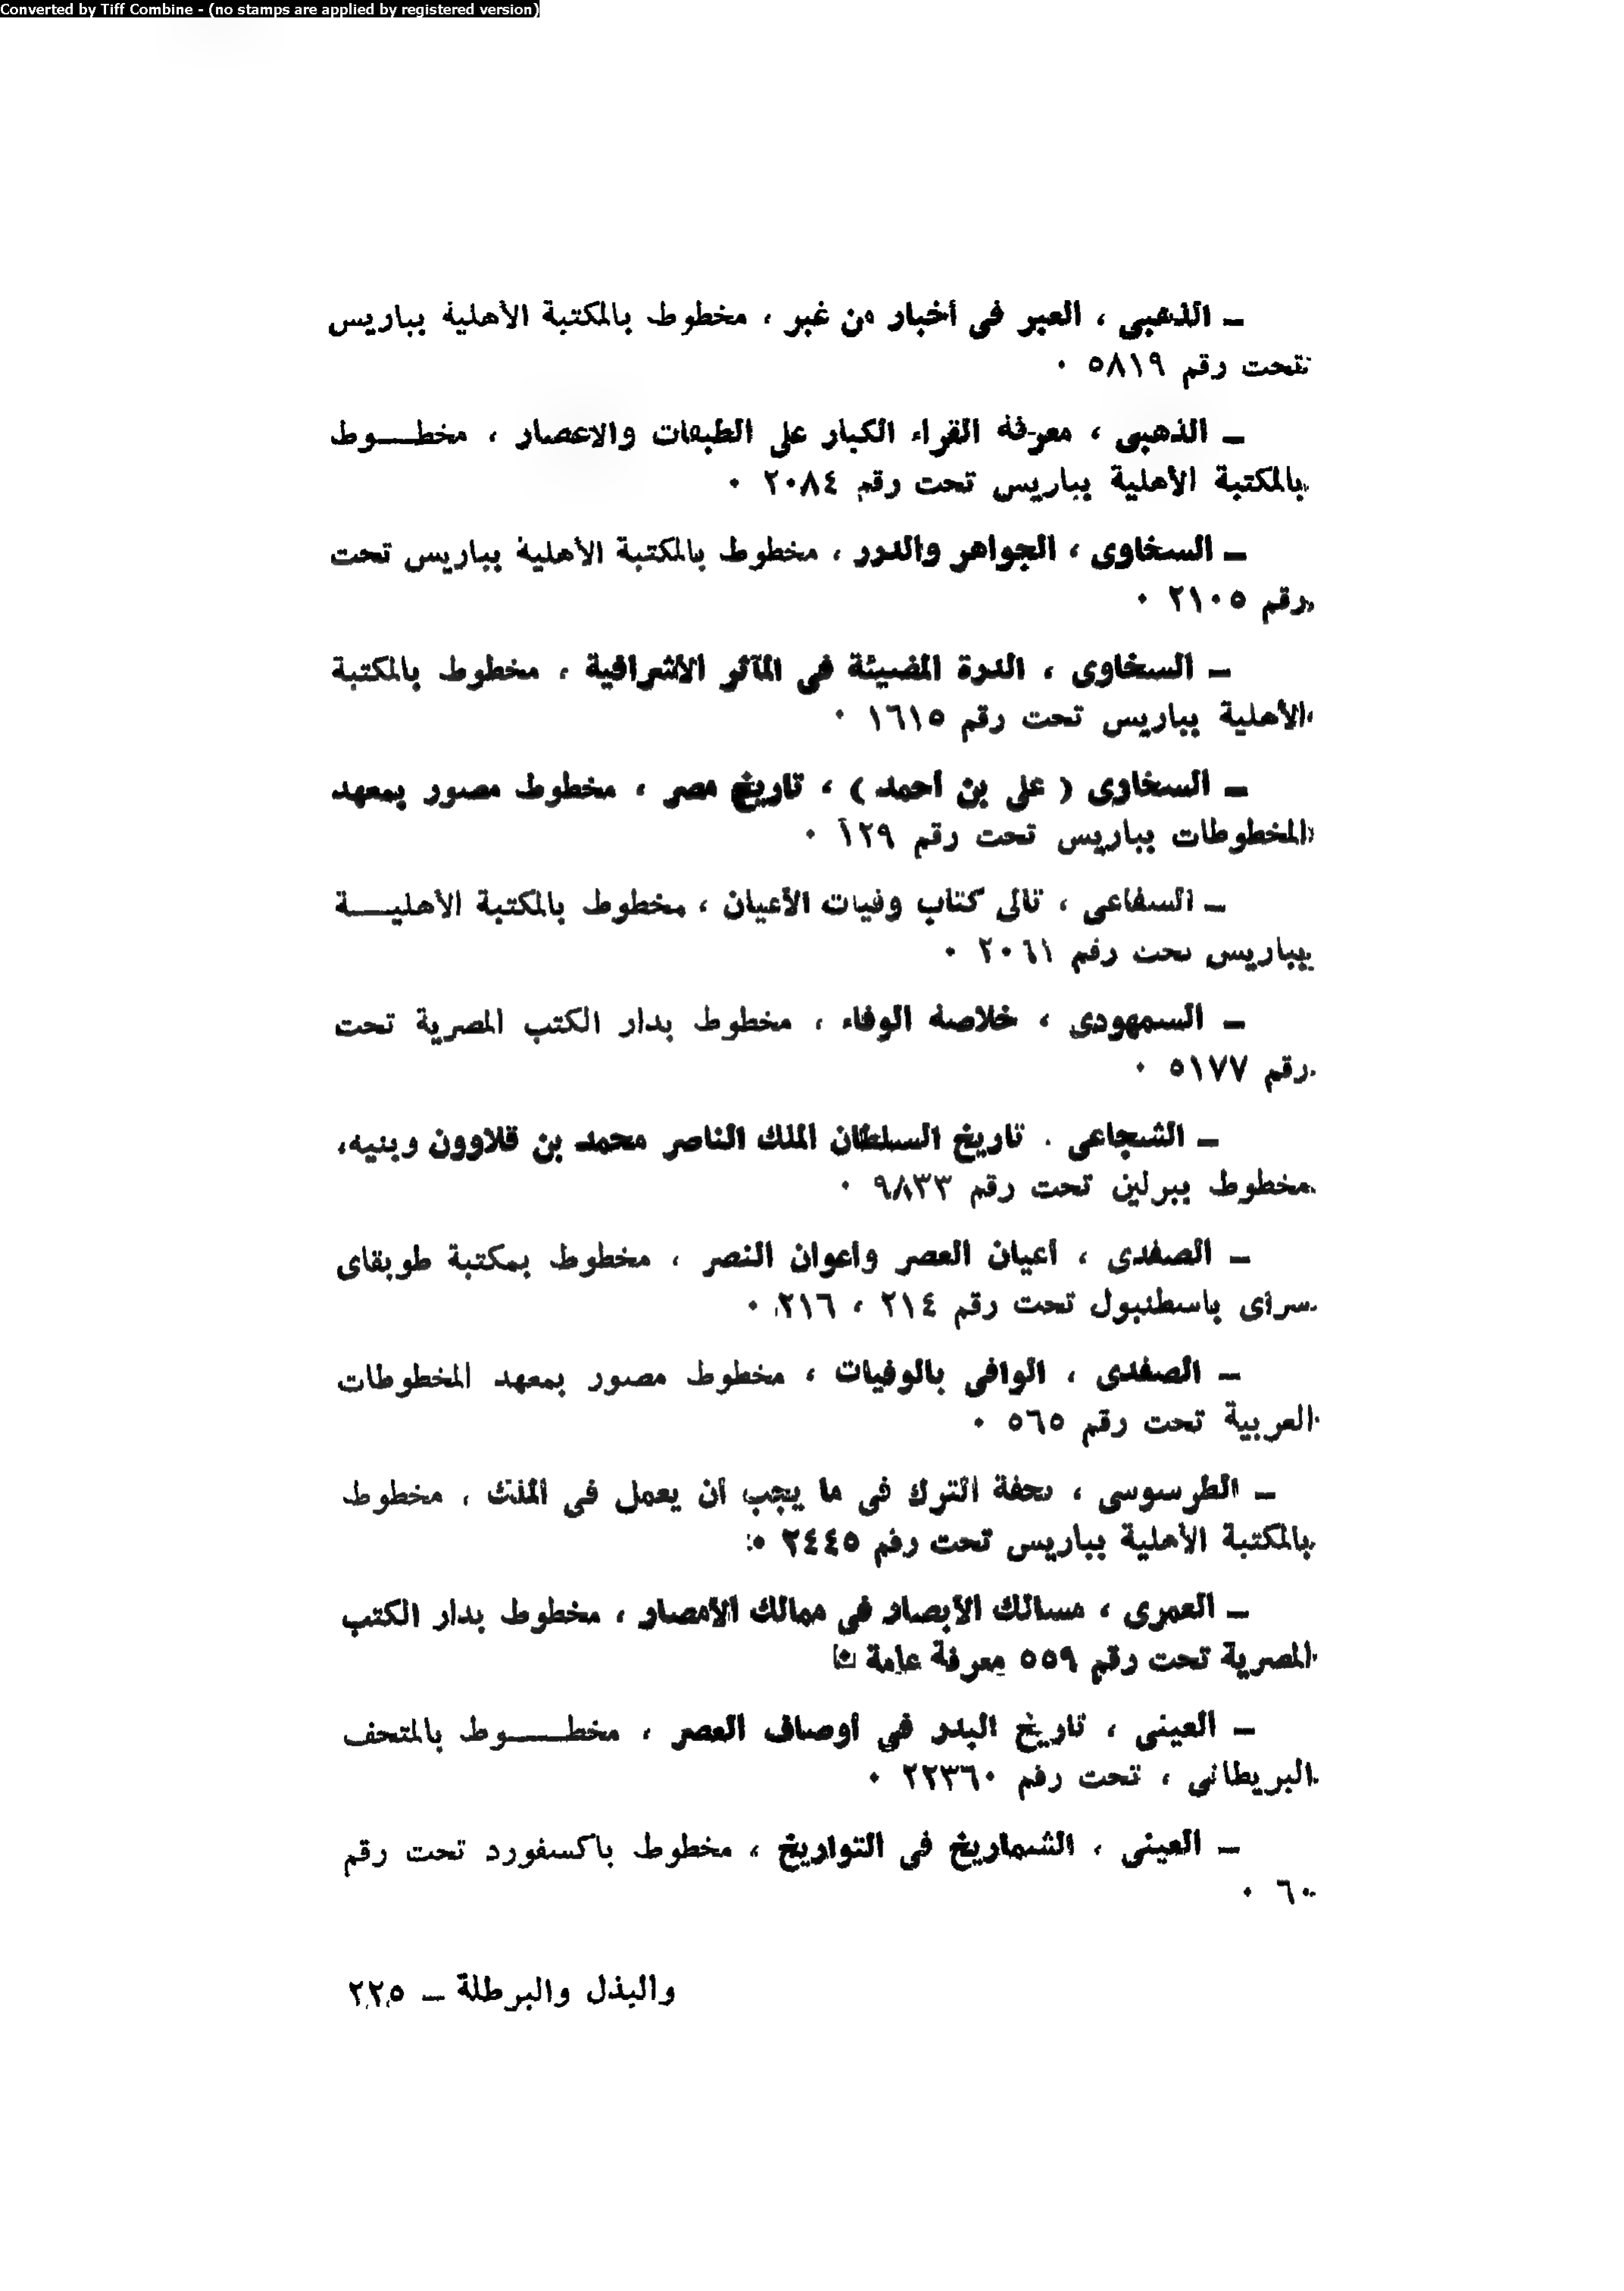 Converted by Tiff Combine - (no stamps are applied by registered version)
ــ الذهبى ، العبر فى أخبار من غبر ، مخطوط بالمكتبة الأهلية بباريس
تحت رقم ٥٨١٩ ٠
ــ الذهبى ، معرفة القراء الكبار على الطبقات والاعصار ، مخطـــوط
بالمكتبة الأهلية بباريس تحت رقم ٢٠٨٤ ٠
ــ السخاوى ، الجواهر والدرر ، مخطوط بالمكتبة الأهلية بباريس تحت
رقم ٢١٠٥ ٠
ــ السخاوى ، الدرة المضيئة فى المآثر الأشرافية ، مخطوط بالمكتبة
الأهلية بباريس تحت رقم ١٦١٥ ٠
ــ السخاوى ( على بن احمد ) ، تاريخ مصر ، مخطوط مصور بمعهد
المخطوطات بباريس تحت رقم ١٢٩ ٠
ــ السفاعى ، تالى كتاب وفيات الأعيان ، مخطوط بالمكتبة الأهليـــة
بباريس تحت رقم ٢٠٦١ ٠
ــ السمهودى ، خلاصة الوفاء ، مخطوط بدار الكتب المصرية تحت
رقم ٥١٧٧ ٠
ــ الشجاعى . تاريخ السلطان الملك الناصر محمد بن قلاوون وبنيه،
مخطوط ببرلين تحت رقم ٩٨٣٣ ٠
ــ الصفدى ، اعيان العصر واعوان النصر ، مخطوط بمكتبة طوبقاى
سراى باسطنبول تحت رقم ٢١٤ ، ٢١٦ ٠
ــ الصفدى ، الوافى بالوفيات ، مخطوط مصور بمعهد المخطوطات
العربية تحت رقم ٥٦٥ ٠
ــ الطرسوسى ، تحفة الترك فى ما يجب أن يعمل فى الملك ، مخطوط
بالمكتبة الأهلية بباريس تحت رقم ٢٤٤٥ ٠
ــ العمرى ، مسالك الأبصار فى ممالك الأمصار ، مخطوط بدار الكتب
المصرية تحت رقم ٥٥٩ معرفة عامة ٠
ــ العينى ، تاريخ البدر فى أوصاف العصر ، مخطـــوط بالمتحف
البريطانى ، تحت رقم ٢٢٣٦٠ ٠
ــ العينى ، الشماريخ فى التواريخ ، مخطوط باكسفورد تحت رقم
٦٠ ٠
والبذل والبرطلة ــ ٢٢٥